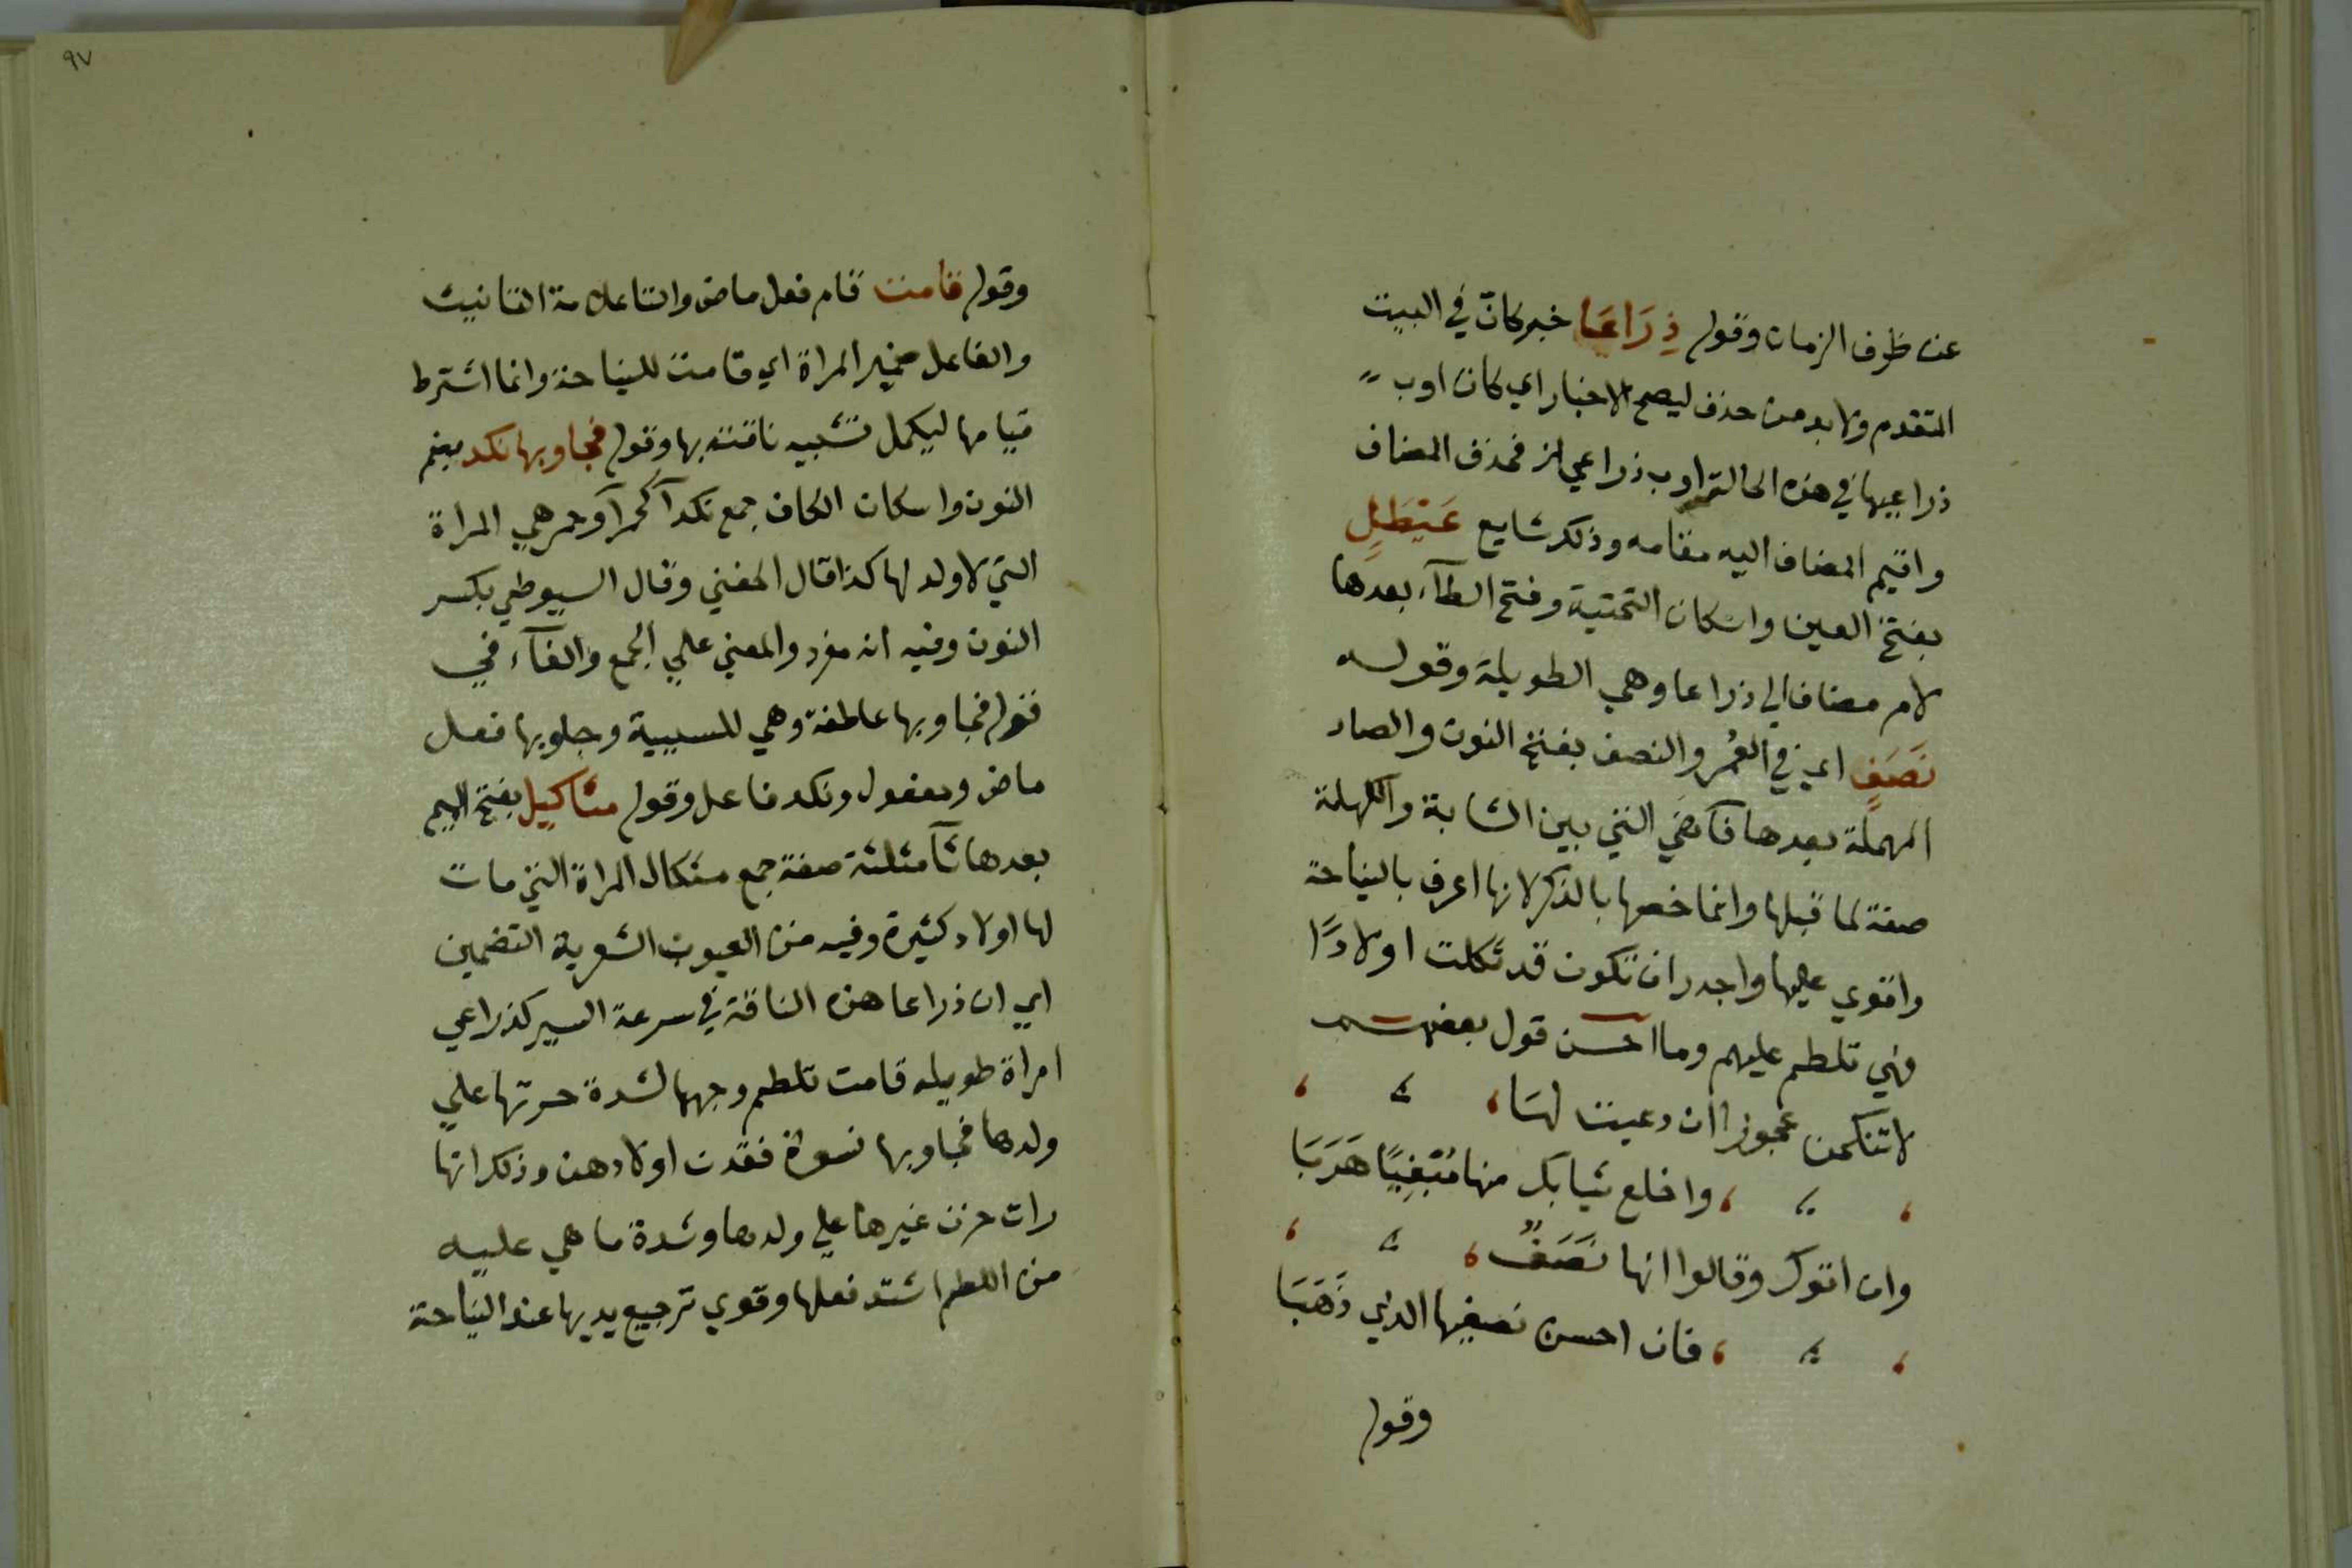 عن ظرف الزمان وقوله ذِرَاعَا خبر كانّ في البيت
المتقدم ولا بد من حذف ليصح الاخبار اي كان اوب
ذراعيها في هذه الحالة اوب ذراعي الخ فحذف المضاف
واقيم المضاف اليه مقامه وذلك شايع عَيْطَلٍ
بفتح العين واسكان التحتية وفتح الطآء بعدها
لام مضاف الي ذراعا وهي الطويلة وقوله
نَصَفٍ اي في العُمُر والنصف بفتح النون والصاد
المهملة بعدها فآ هي التي بين الشابة والكهلة
صفة لما قبلها وانما خصها بالذكر لانها اعرف بالنياحة
واقوي عليها واجدر ان تكون قد ثكلت اولادًا
فهي تلطم عليهم وما احسن قول بعضهم
لا تنكحن عجوزا ان دعيت لها
واخلع ثيابك منها مُبْتَغِيًا هَرَبَا
وان اتوك وقالوا انها نَصَفٌ
فان احسن نصفيها الذي ذَهَبَا
وقوله
٩٧
وقوله قامت قام فعل ماض والتا علامة التانيث
والفاعل ضمير المراة اي قامت للنياحة وانما اشترط
قيامها ليكمل تشبيه ناقته بها وقوله فجاوبها نكد بضم
النون واسكان الكاف جمع نكدآ كحمرآ وحمر هي المراة
التي لا ولد لها كذا قال المغني وقال السيوطي بكسر
النون وفيه انه مفرد والمعني علي الجمع والفآء في
قوله فجاوبها عاطفة وهي للسببية وجاوبها فعل
ماض ومفعول ونكد فاعل وقوله مثاكيل بفتح الميم
بعدها ثآ مثلثة صفة جمع مثكال المراة التي مات
لها اولاد كثيرة وفيه من العيوب الشعرية التضمين
اي ان ذراعا هذه الناقة في سرعة السير كذراعي
امراة طويله قامت تلطم وجهها لشدة حزنها علي
ولدها فجاوبها نسوة فقدت اولادهن وذكر انها
رات حزن غيرها علي ولدها وشدة ما هي عليه
من اللطم اشتد فعلها وقوي ترجيع يديها عند النياحة